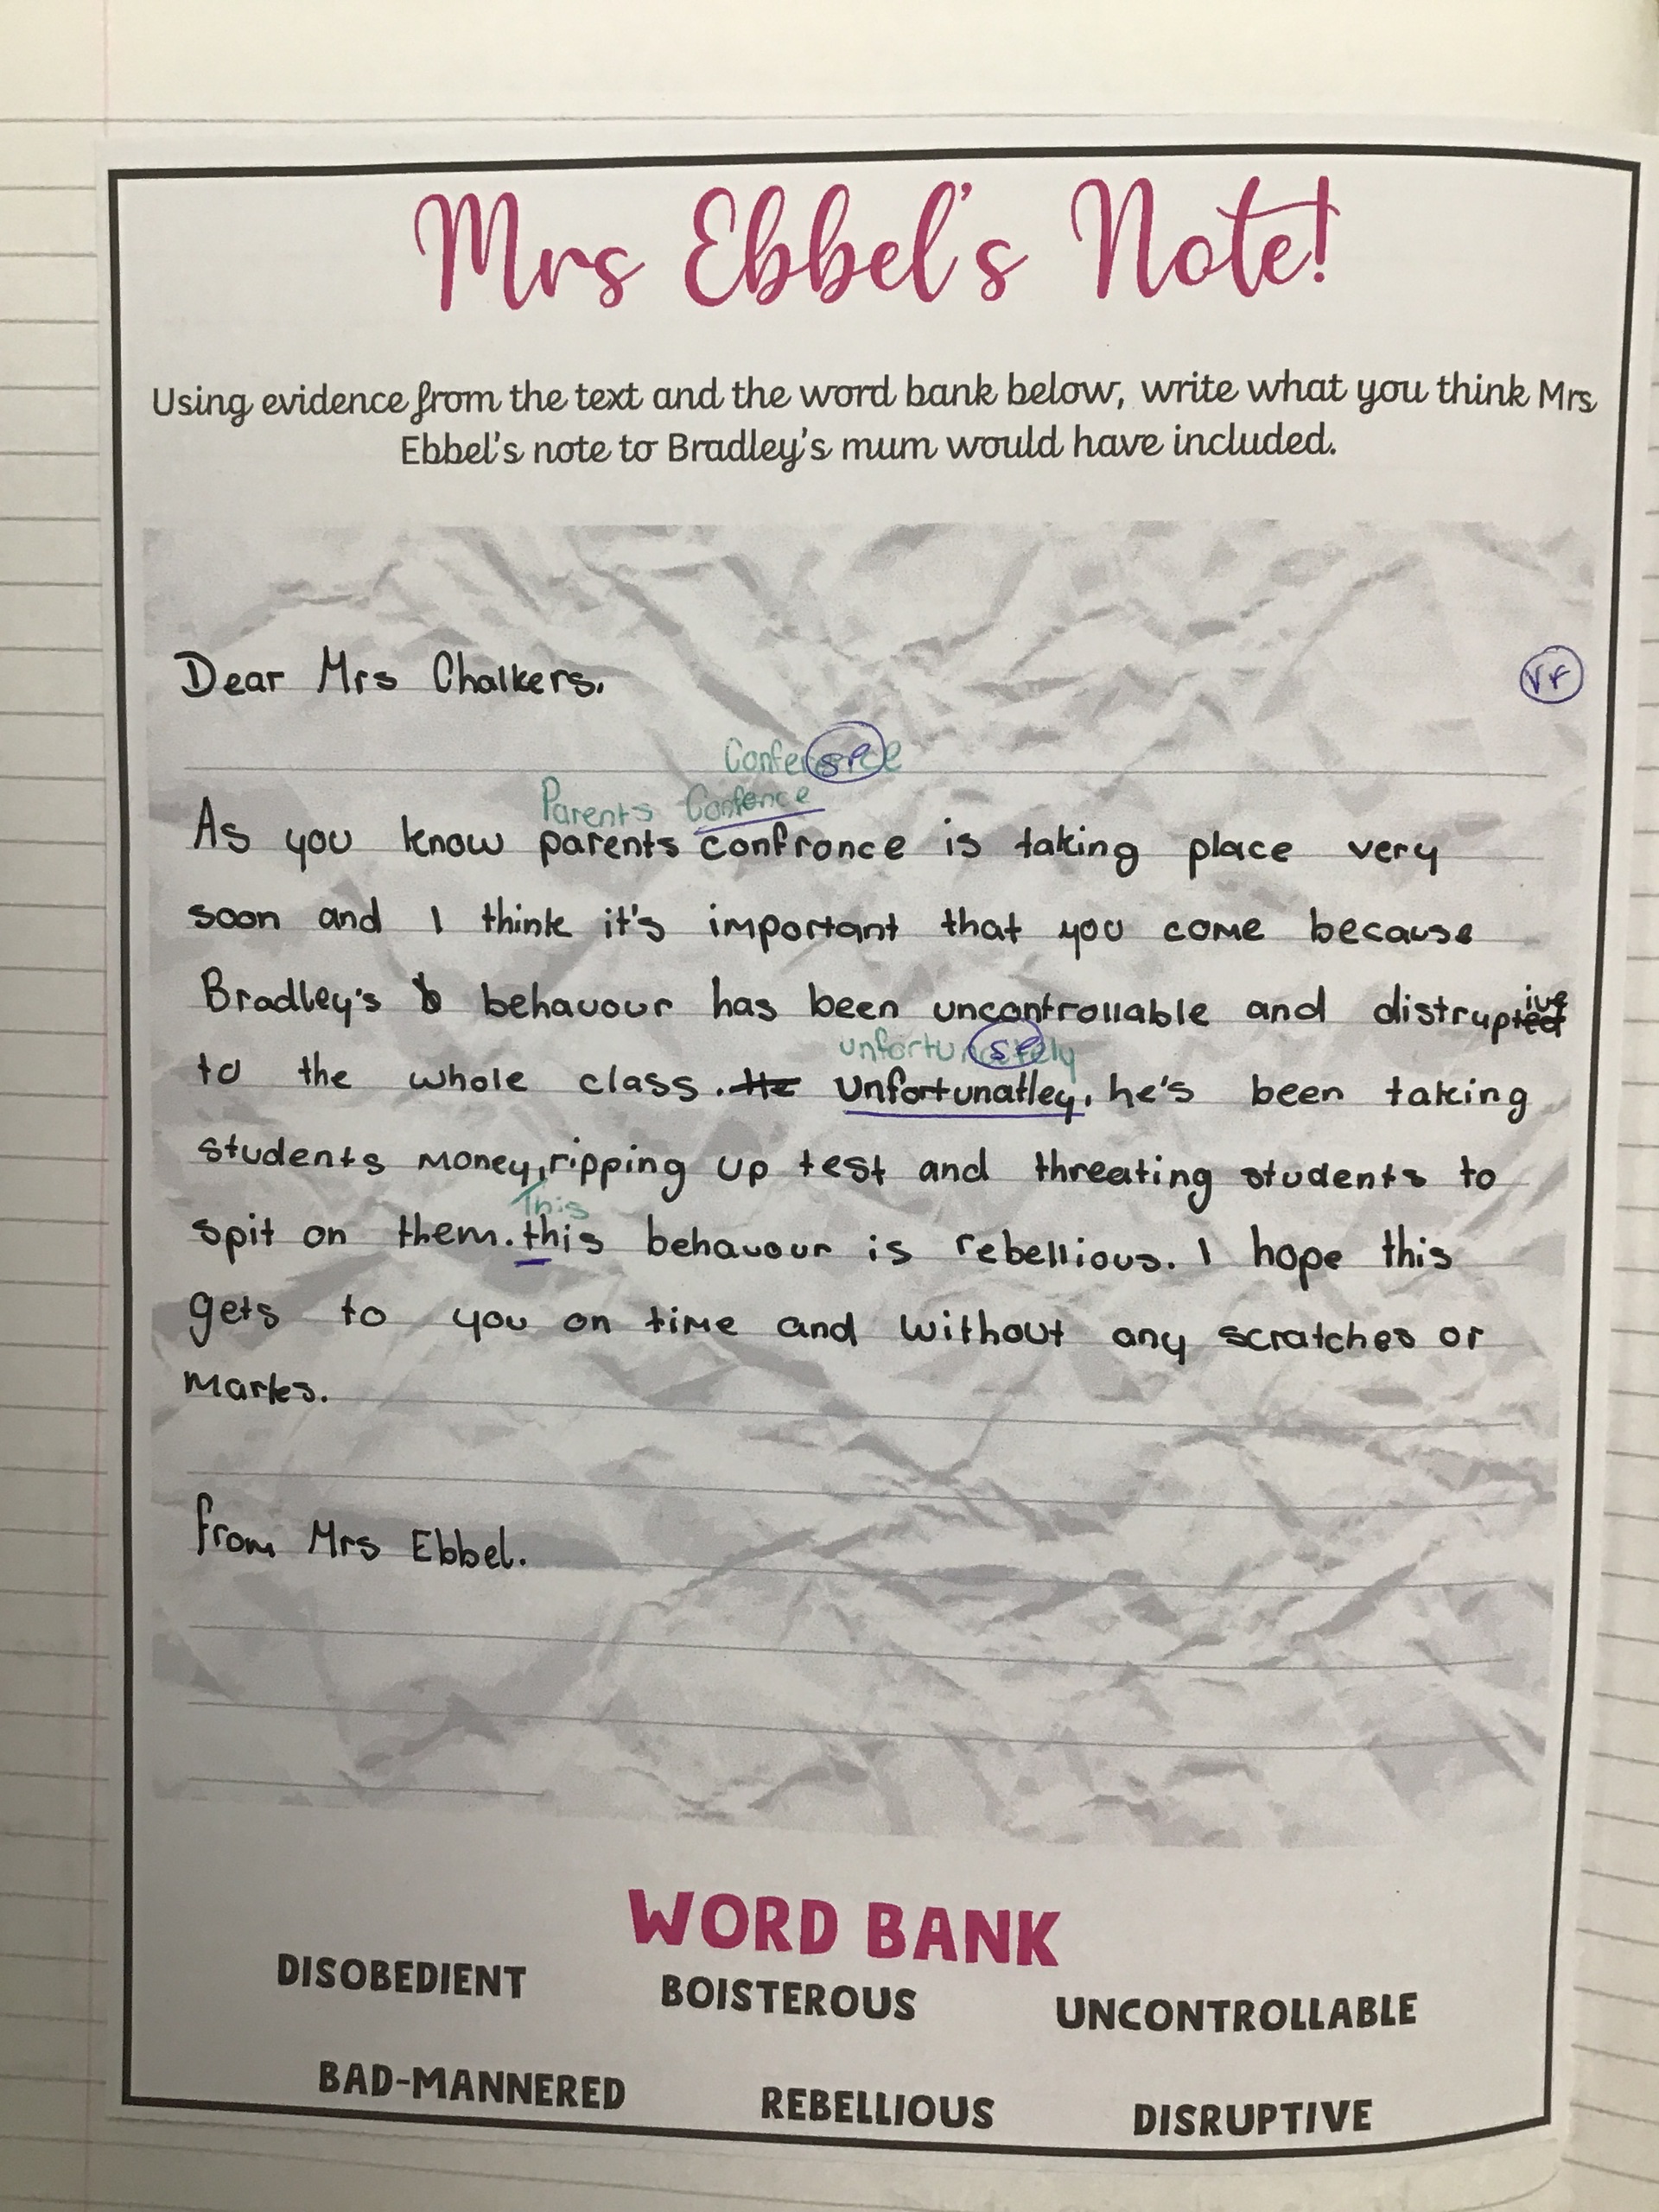 Mrs Ebbel's Note!
Using evidence from the text and the word bank below, write what you think Mrs
Ebbel's note to Bradley's mum would have included.
Dear Mrs Chalkers,
VF
Conference
sp
Parents Confence
As you know parents confronce is taking place very
soon and I think it's important that you come because
Bradley's b behavour has been uncontrollable and distruptive
unfortunately
sp
to the whole class. He Unfortunatley, he's been taking
students money, ripping up test and threating students to
This
spit on them. this behavour is rebellious. I hope this
gets to you on time and without any scratches or
marks.
from Mrs Ebbel.
WORD BANK
DISOBEDIENT BOISTEROUS UNCONTROLLABLE
BAD-MANNERED REBELLIOUS DISRUPTIVE